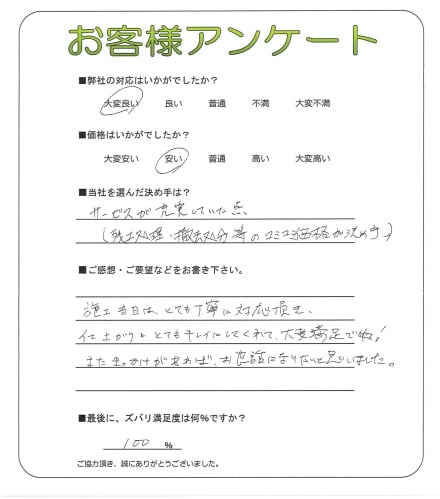 お客様アンケート
■弊社の対応はいかがでしたか？
大変良い 良い 普通 不満 大変不満
■価格はいかがでしたか？
大変安い 安い 普通 高い 大変高い
■当社を選んだ決め手は？
サービスが充実していた点
(残土処理・撤去処分等のコミコミ価格が決め手)
■ご感想・ご要望などをお書き下さい。
施工当日は、とても丁寧に対応頂き、
仕上がりもとてもキレイにしてくれて、大変満足です!
またきっかけがあれば、お世話になりたいと思いました。
■最後に、ズバリ満足度は何％ですか？
100 ％
ご協力頂き、誠にありがとうございました。